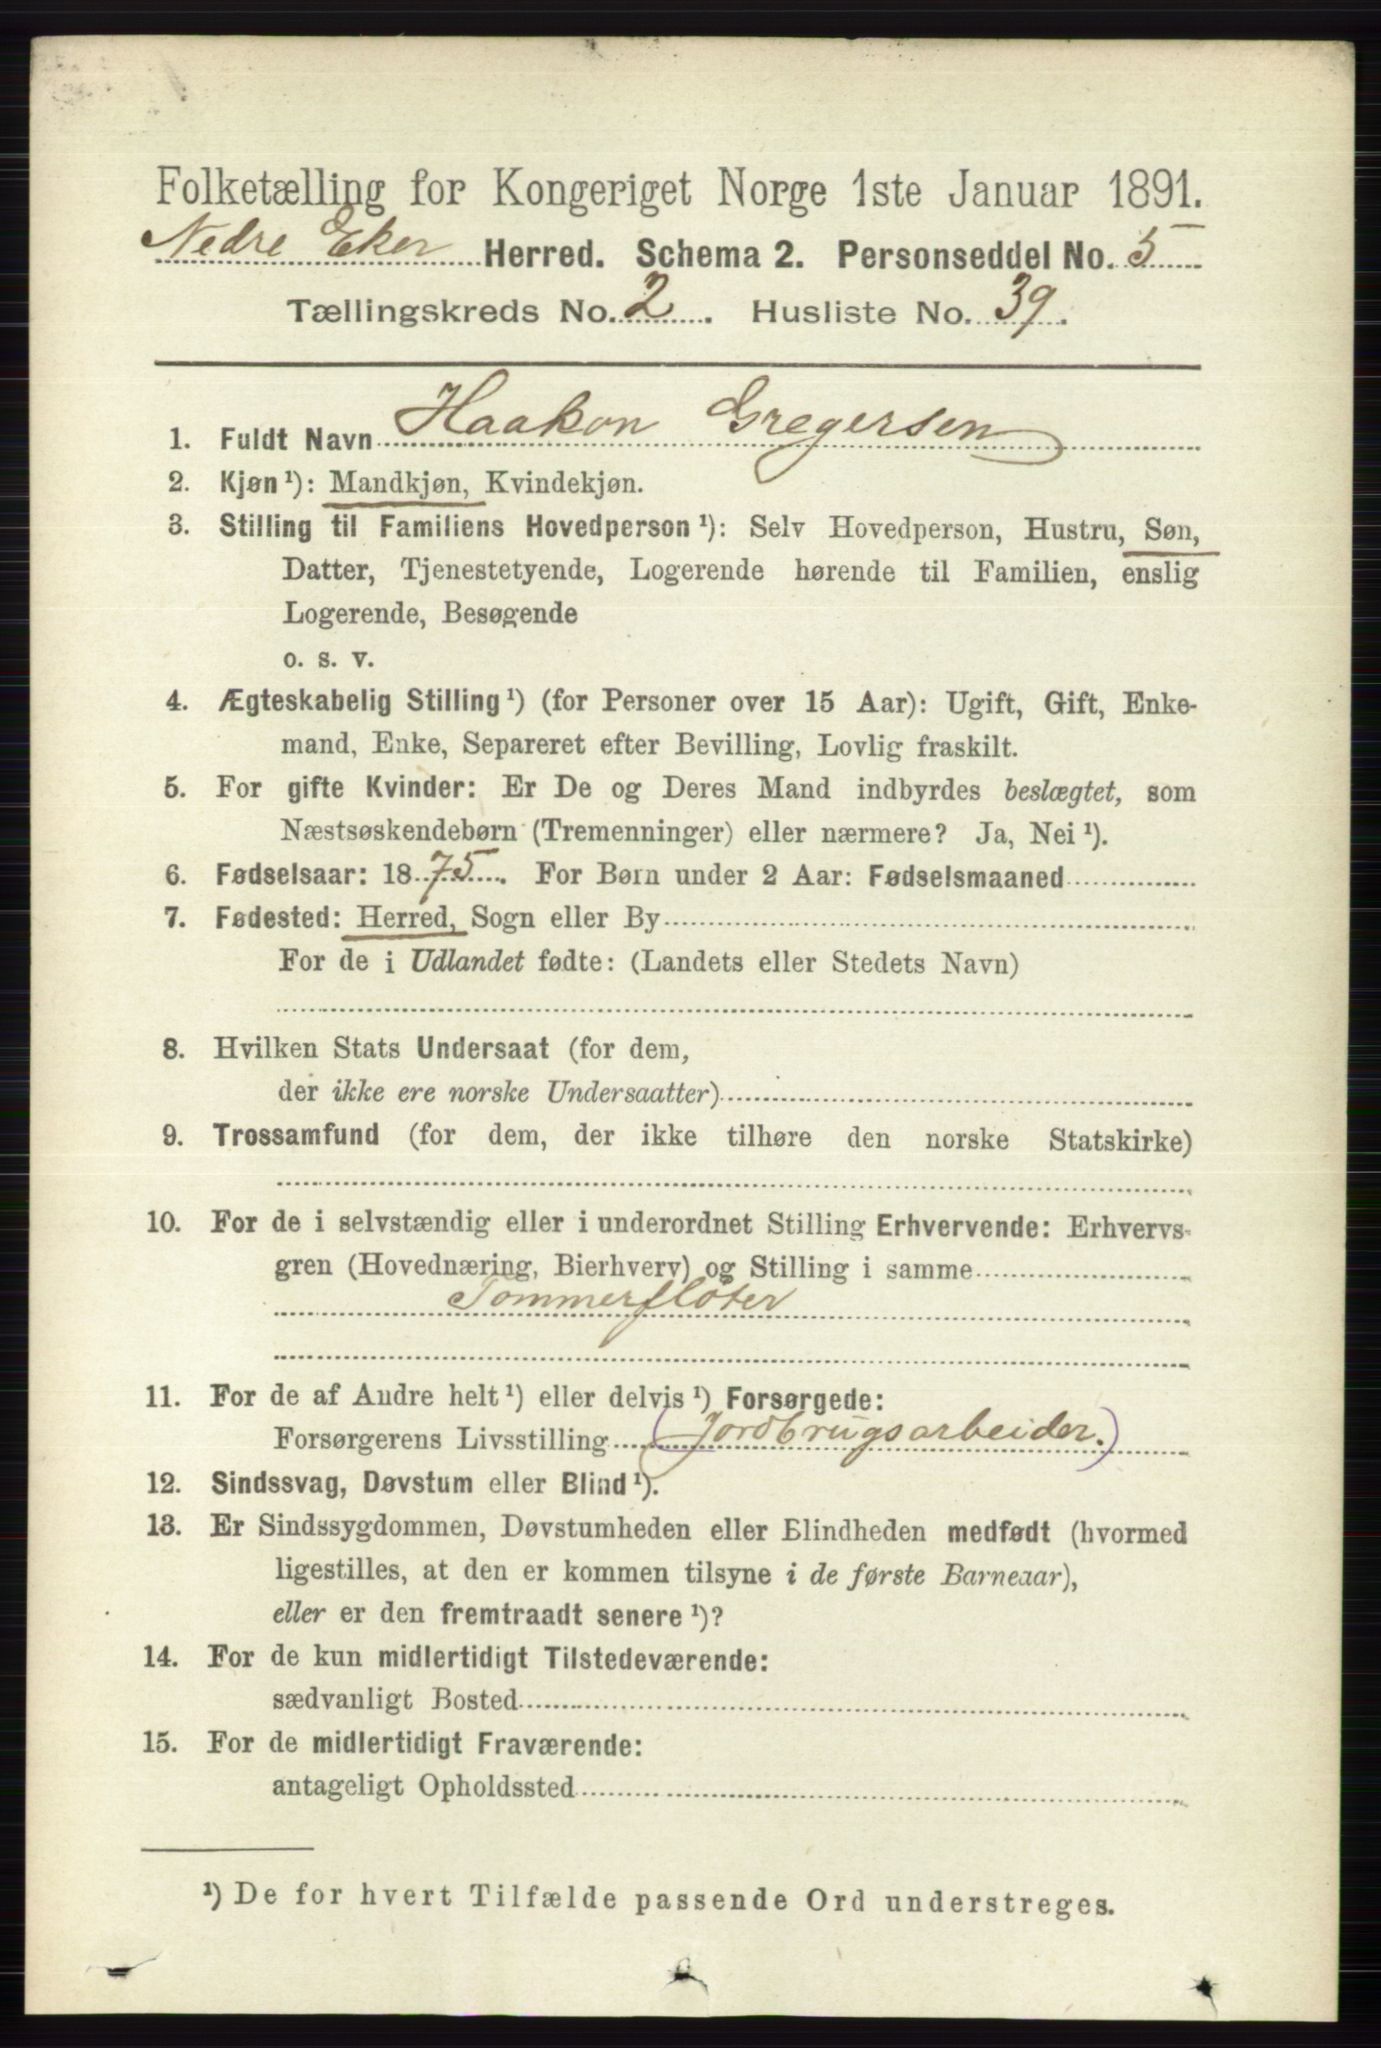 Folketælling for Kongeriget Norge 1ste Januar 1891.
Nedre Eker Herred. Schema 2. Personseddel No. 5
Tællingskreds No. 2. Husliste No. 39.
1. Fuldt Navn Haakon Gregersen
2. Kjøn¹): Mandkjøn, Kvindekjøn.
3. Stilling til Familiens Hovedperson¹): Selv Hovedperson, Hustru, Søn,
Datter, Tjenestetyende, Logerende hørende til Familien, enslig
Logerende, Besøgende
o. s. v.
4. Ægteskabelig Stilling¹) (for Personer over 15 Aar): Ugift, Gift, Enke-
mand, Enke, Separeret efter Bevilling, Lovlig fraskilt.
5. For gifte Kvinder: Er De og Deres Mand indbyrdes beslægtet, som
Næstsøskendebørn (Tremenninger) eller nærmere? Ja, Nei¹).
6. Fødselsaar: 1875. For Børn under 2 Aar: Fødselsmaaned
7. Fødested: Herred, Sogn eller By
For de i Udlandet fødte: (Landets eller Stedets Navn)
8. Hvilken Stats Undersaat (for dem,
der ikke ere norske Undersaatter)
9. Trossamfund (for dem, der ikke tilhøre den norske Statskirke)
10. For de i selvstændig eller i underordnet Stilling Erhvervende: Erhvervs-
gren (Hovednæring, Bierhverv) og Stilling i samme
Tommerfløter
11. For de af Andre helt¹) eller delvis¹) Forsørgede:
Forsørgerens Livsstilling (Jordbrugsarbeider.)
12. Sindssvag, Døvstum eller Blind¹).
13. Er Sindssygdommen, Døvstumheden eller Blindheden medfødt (hvormed
ligestilles, at den er kommen tilsyne i de første Barneaar),
eller er den fremtraadt senere¹)?
14. For de kun midlertidigt Tilstedeværende:
sædvanligt Bosted
15. For de midlertidigt Fraværende:
antageligt Opholdssted
¹) De for hvert Tilfælde passende Ord understreges.